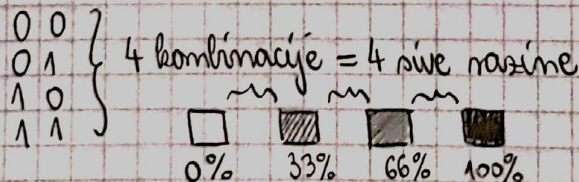 0 0
0 1
1 0
1 1
4 kombinacije = 4 sive razine
0% 33% 66% 100%